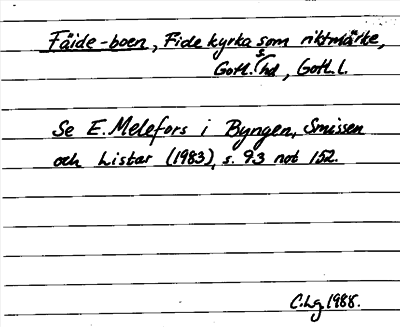 Fäide-boen, Fide kyrka som riktmärke,
Gotl. s hd, Gotl. l.
Se E. Melefors i Byngen, Smissen
och Listar (1983), s. 93 not 152.
C.Lg 1988.